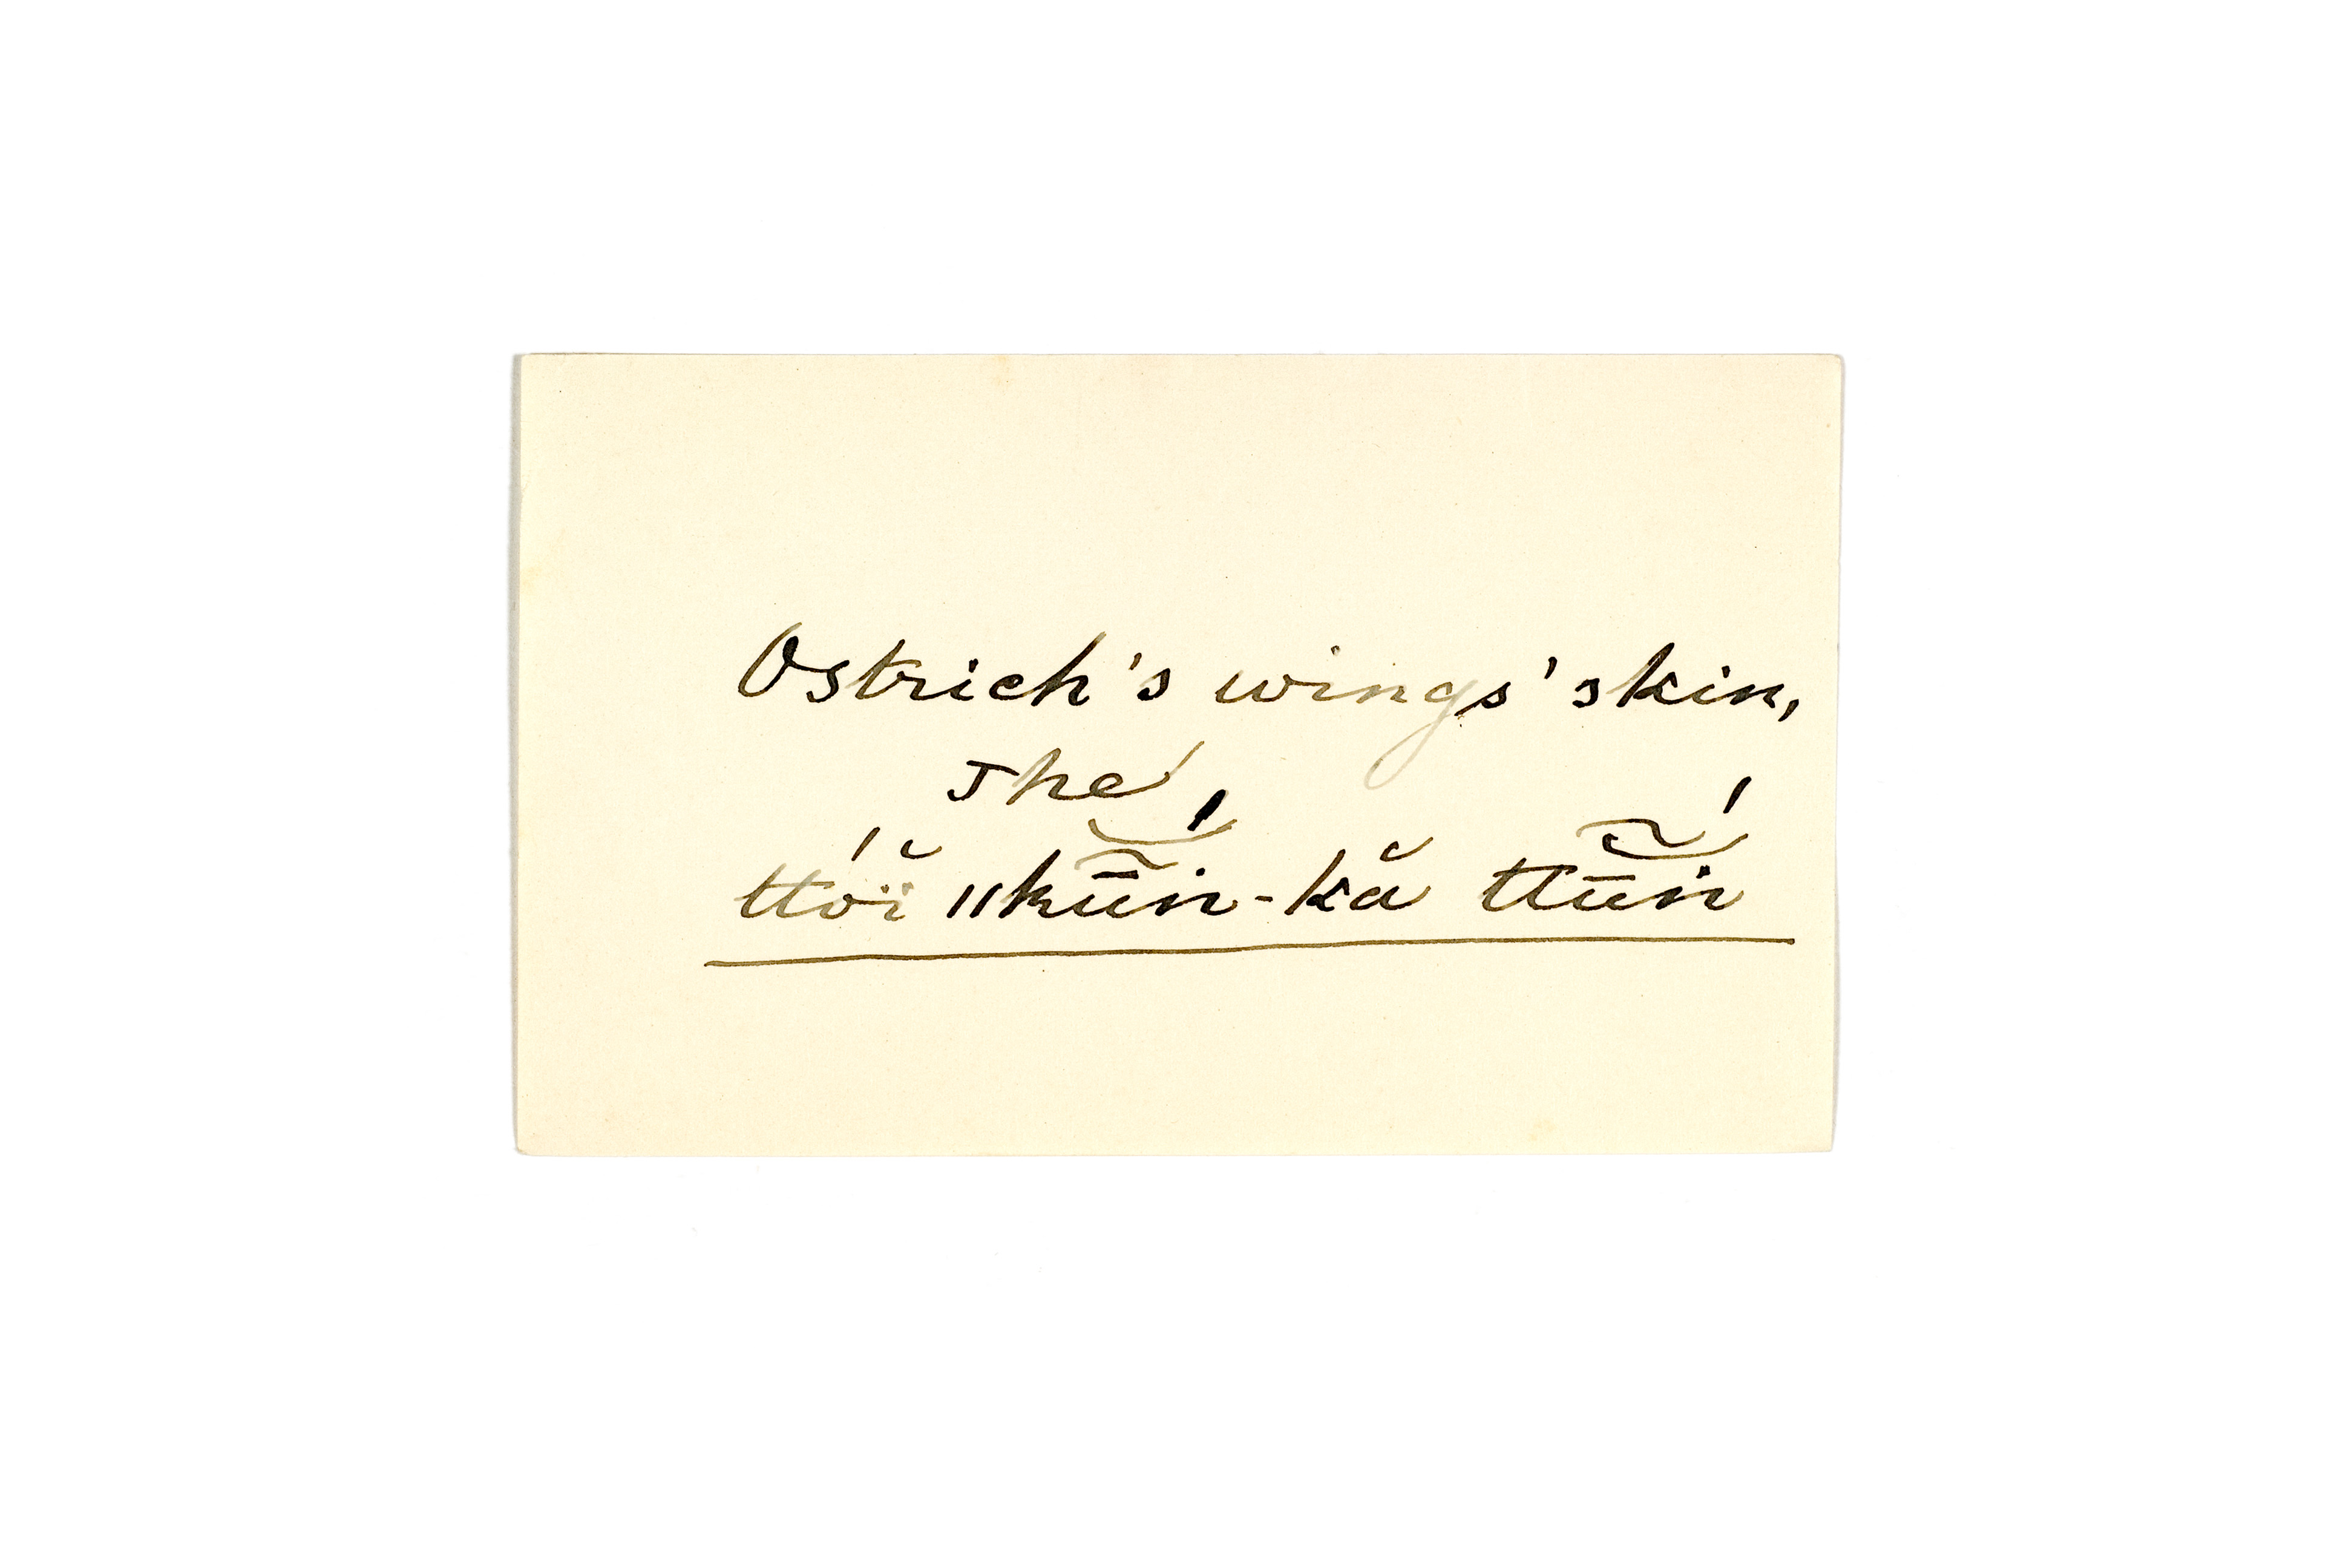 Ostrich's wings' skin,
The
ttóĭ ǁkū̃̆́n-kă ttū̃̆́n